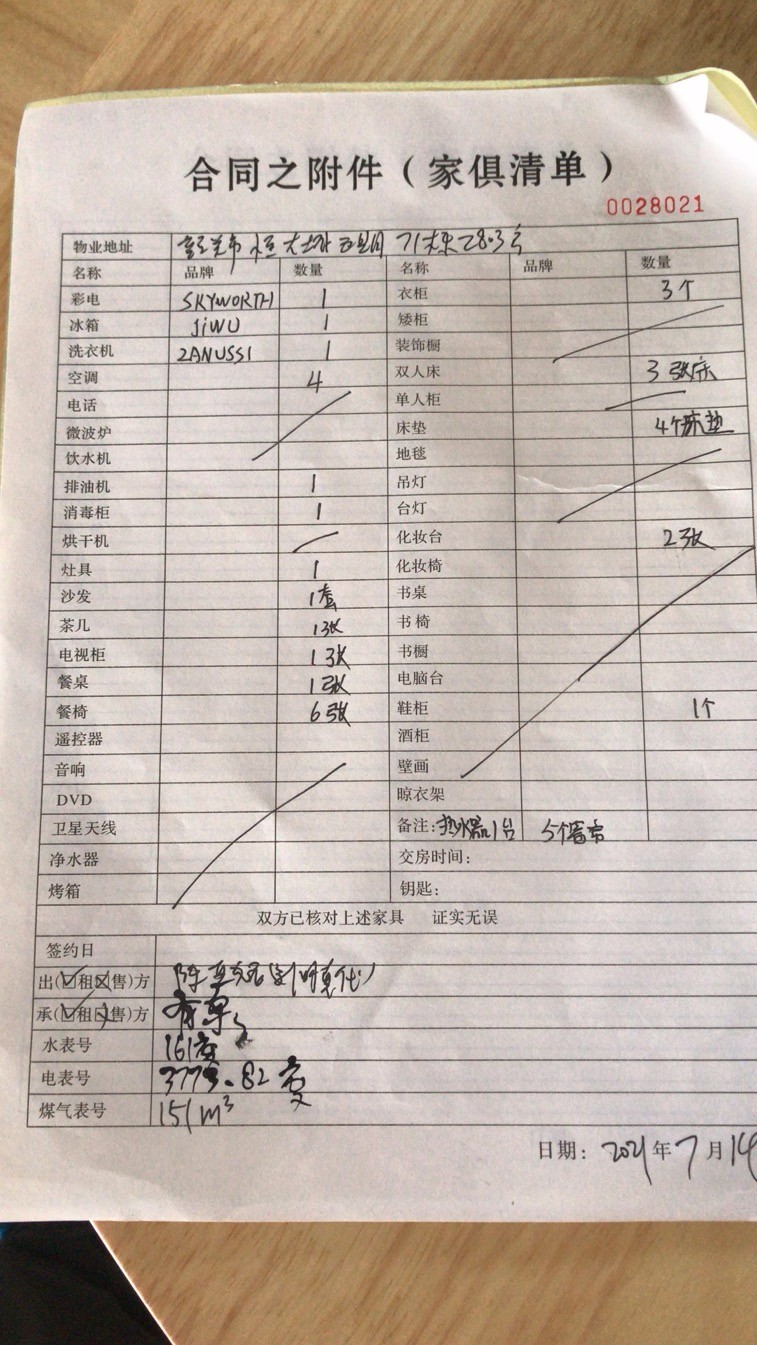 合同之附件（家俱清单）
0028021
物业地址 恒大 71栋 2803号
名称 品牌 数量 名称 品牌 数量
彩电 SKYWORTH 1 衣柜 3个
冰箱 JiWU 1 矮柜
洗衣机 ZANUSSI 1 装饰橱
空调 4 双人床 3张床
电话 单人柜
微波炉 床垫 4个床垫
饮水机 地毯
排油机 1 吊灯
消毒柜 1 台灯
烘干机 化妆台 2张
灶具 1 化妆椅
沙发 1套 书桌
茶几 1张 书椅
电视柜 1张 书橱
餐桌 1张 电脑台
餐椅 6张 鞋柜 1个
遥控器 酒柜
音响 壁画
DVD 晾衣架
卫星天线 备注：热水器1台 5个窗帘
净水器 交房时间：
烤箱 钥匙：
双方已核对上述家具 证实无误
签约日
出(☑租☒售)方
承(☑租☒售)方
水表号 161度
电表号 .82度
煤气表号 151m³
日期：2021年7月14